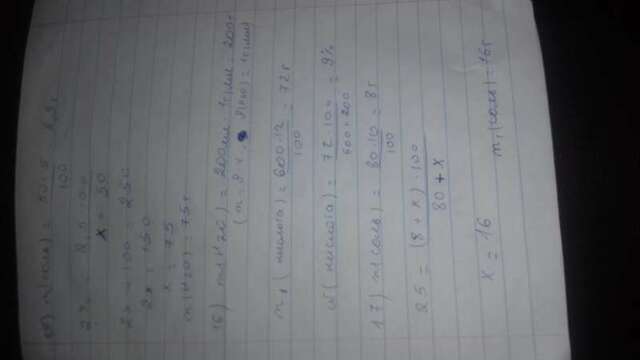 m(соль) = 50·5 / 100 = 2,5г
2% = 2,5·100 / x + 50
2x + 100 = 250
2x = 150
x = 75
m(H2O) = 75г
16) m(H2O) = 200мл · 1г/мл = 200г
(m = ρ·V, ρ(H2O) = 1г/мл)
m1(кислота) = 600·12 / 100 = 72г
ω(кислота) = 72·100 / 600+200 = 9%
17) m(соль) = 80·10 / 100 = 8г
25 = (8 + x)·100 / 80 + x
x = 16 m1(соль) = 16г